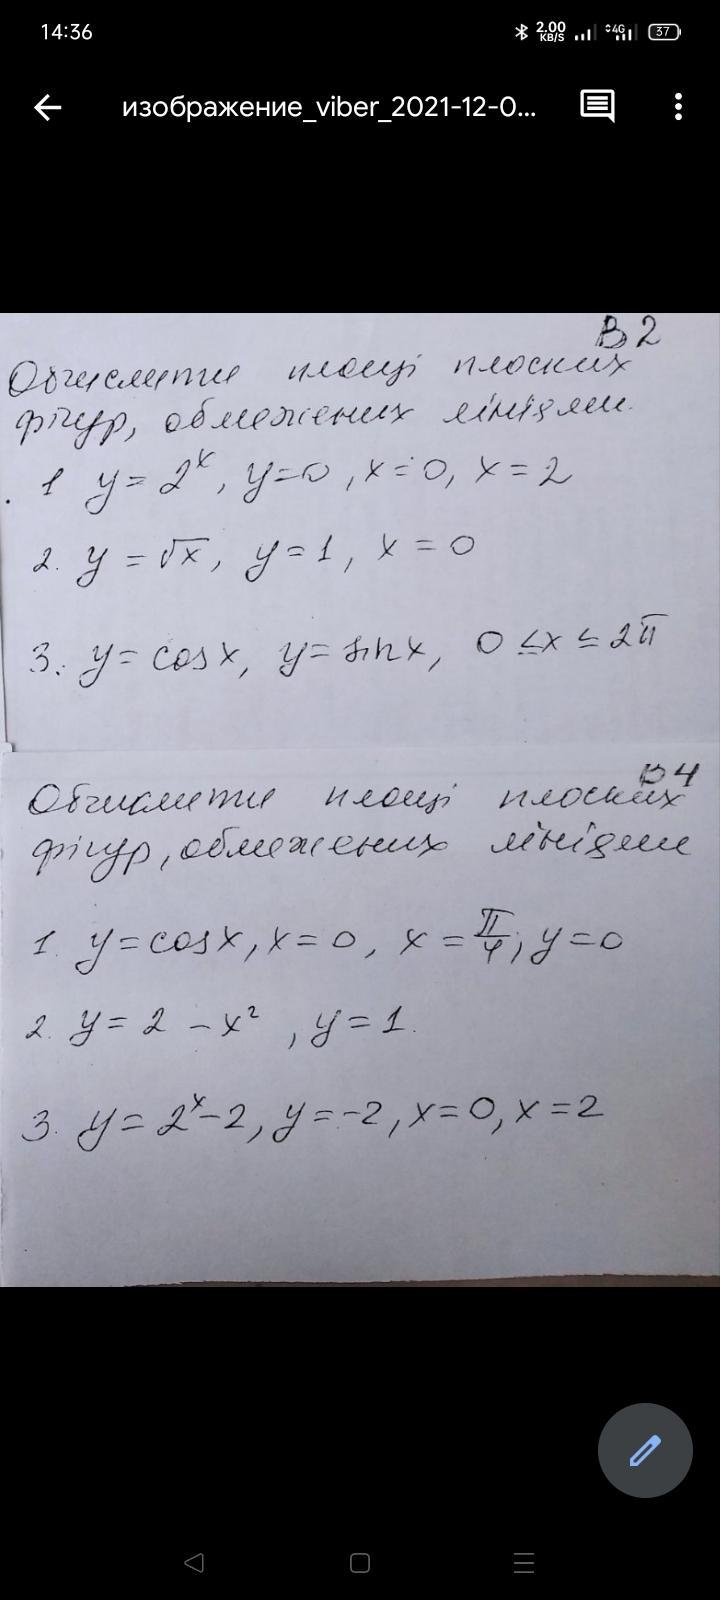 14:36
2.00 KB/S 4G 37
изображение_viber_2021-12-0...
В2
Обчислити площі плоских
фігур, обмежених лініями.
1 y = 2ˣ, y=0, x=0, x=2
2. y = √x, y=1, x=0
3. y=cosx, y=sinx, 0≤x≤2π
В4
Обчислити площі плоских
фігур, обмежених лініями
1. y=cosx, x=0, x=π/4, y=0
2. y=2-x², y=1.
3. y=2ˣ-2, y=-2, x=0, x=2